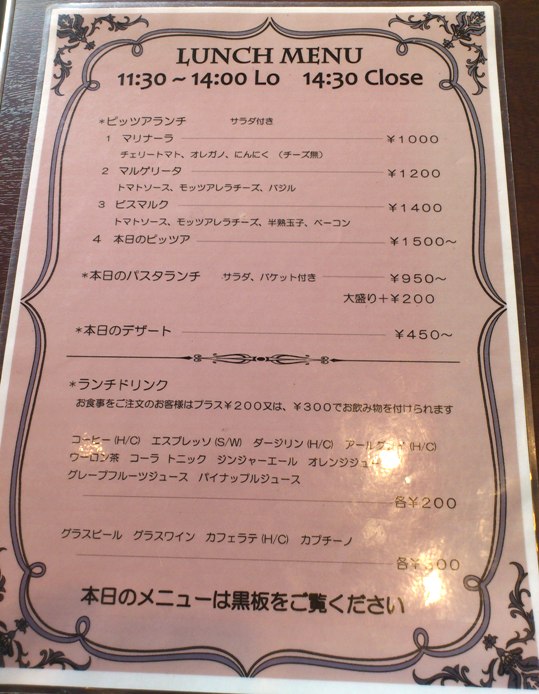 LUNCH MENU
11:30 ~ 14:00 Lo 14:30 Close
*ピッツアランチ サラダ付き
1 マリナーラ ¥1000
チェリートマト、オレガノ、にんにく (チーズ無)
2 マルゲリータ ¥1200
トマトソース、モッツアレラチーズ、バジル
3 ビスマルク ¥1400
トマトソース、モッツアレラチーズ、半熟玉子、ベーコン
4 本日のピッツア ¥1500~
*本日のパスタランチ サラダ、バケット付き ¥950~
大盛り+¥200
*本日のデザート ¥450~
*ランチドリンク
お食事をご注文のお客様はプラス¥200又は、¥300でお飲み物を付けられます
コーヒー(H/C) エスプレッソ(S/W) ダージリン(H/C) アールグレイ(H/C)
ウーロン茶 コーラ トニック ジンジャーエール オレンジジュース
グレープフルーツジュース パイナップルジュース
各¥200
グラスビール グラスワイン カフェラテ(H/C) カプチーノ
各¥300
本日のメニューは黒板をご覧ください